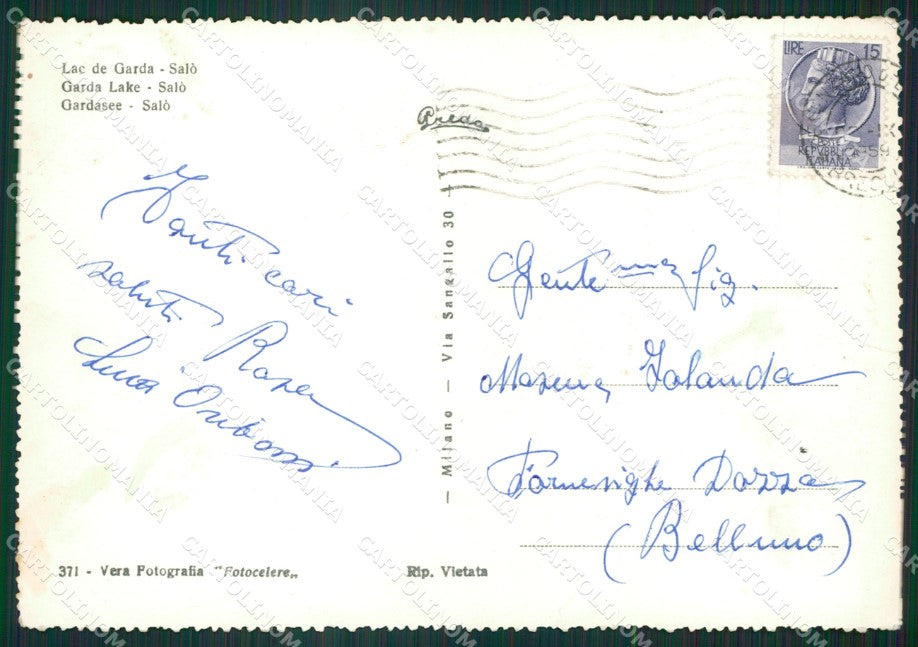 Lac de Garda - Salò
Garda Lake - Salò
Gardasee - Salò
Preda
LIRE 15
POSTE
REPUBBLICA
ITALIANA
Tanti cari
saluti Rosa
Via Sangallo 30
— Milano —
Gente Sig.
Iolanda
Fornesighe
(Belluno)
371 - Vera Fotografia "Fotocelere„
Rip. Vietata
CARTOLINOMANIA